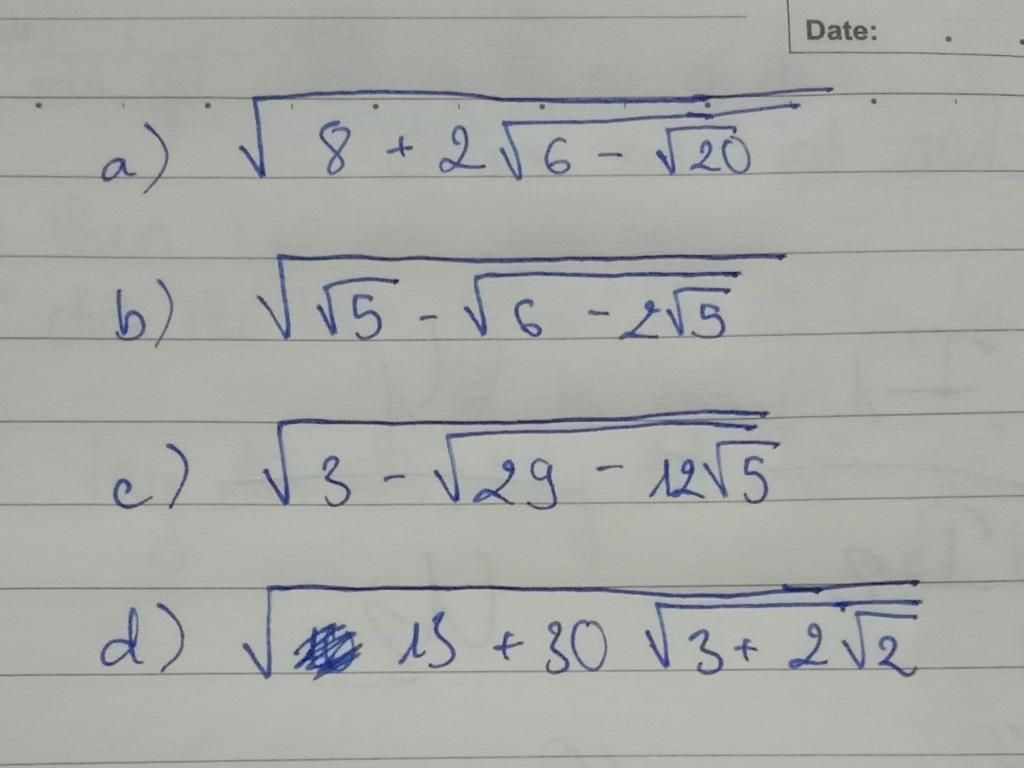 Date: . .
a) √(8 + 2√(6 - √20))
b) √(√5 - √(6 - 2√5))
c) √(3 - √(29 - 12√5))
d) √(13 + 30√(3 + 2√2))